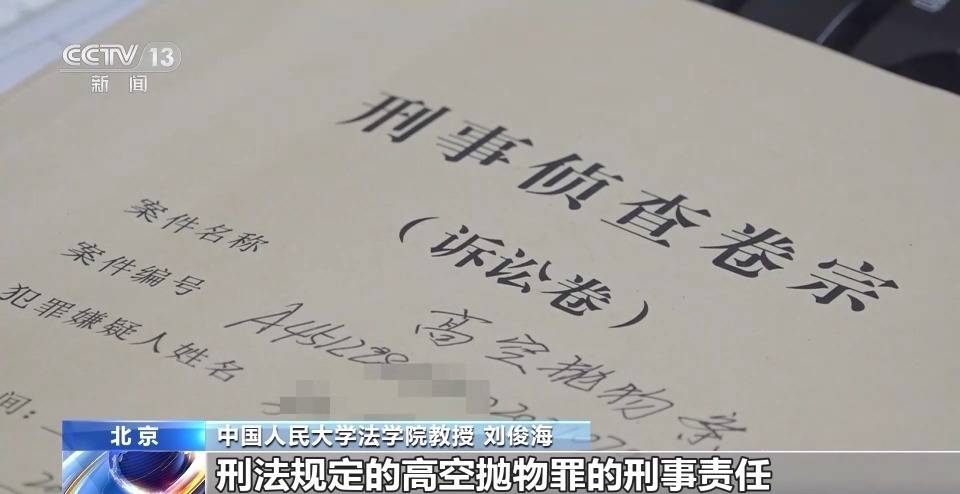 CCTV 13
新闻
刑事侦查卷宗
(诉讼卷)
案件名称 高空抛物案
案件编号 A451228
犯罪嫌疑人姓名
间:
北京
中国人民大学法学院教授 刘俊海
刑法规定的高空抛物罪的刑事责任